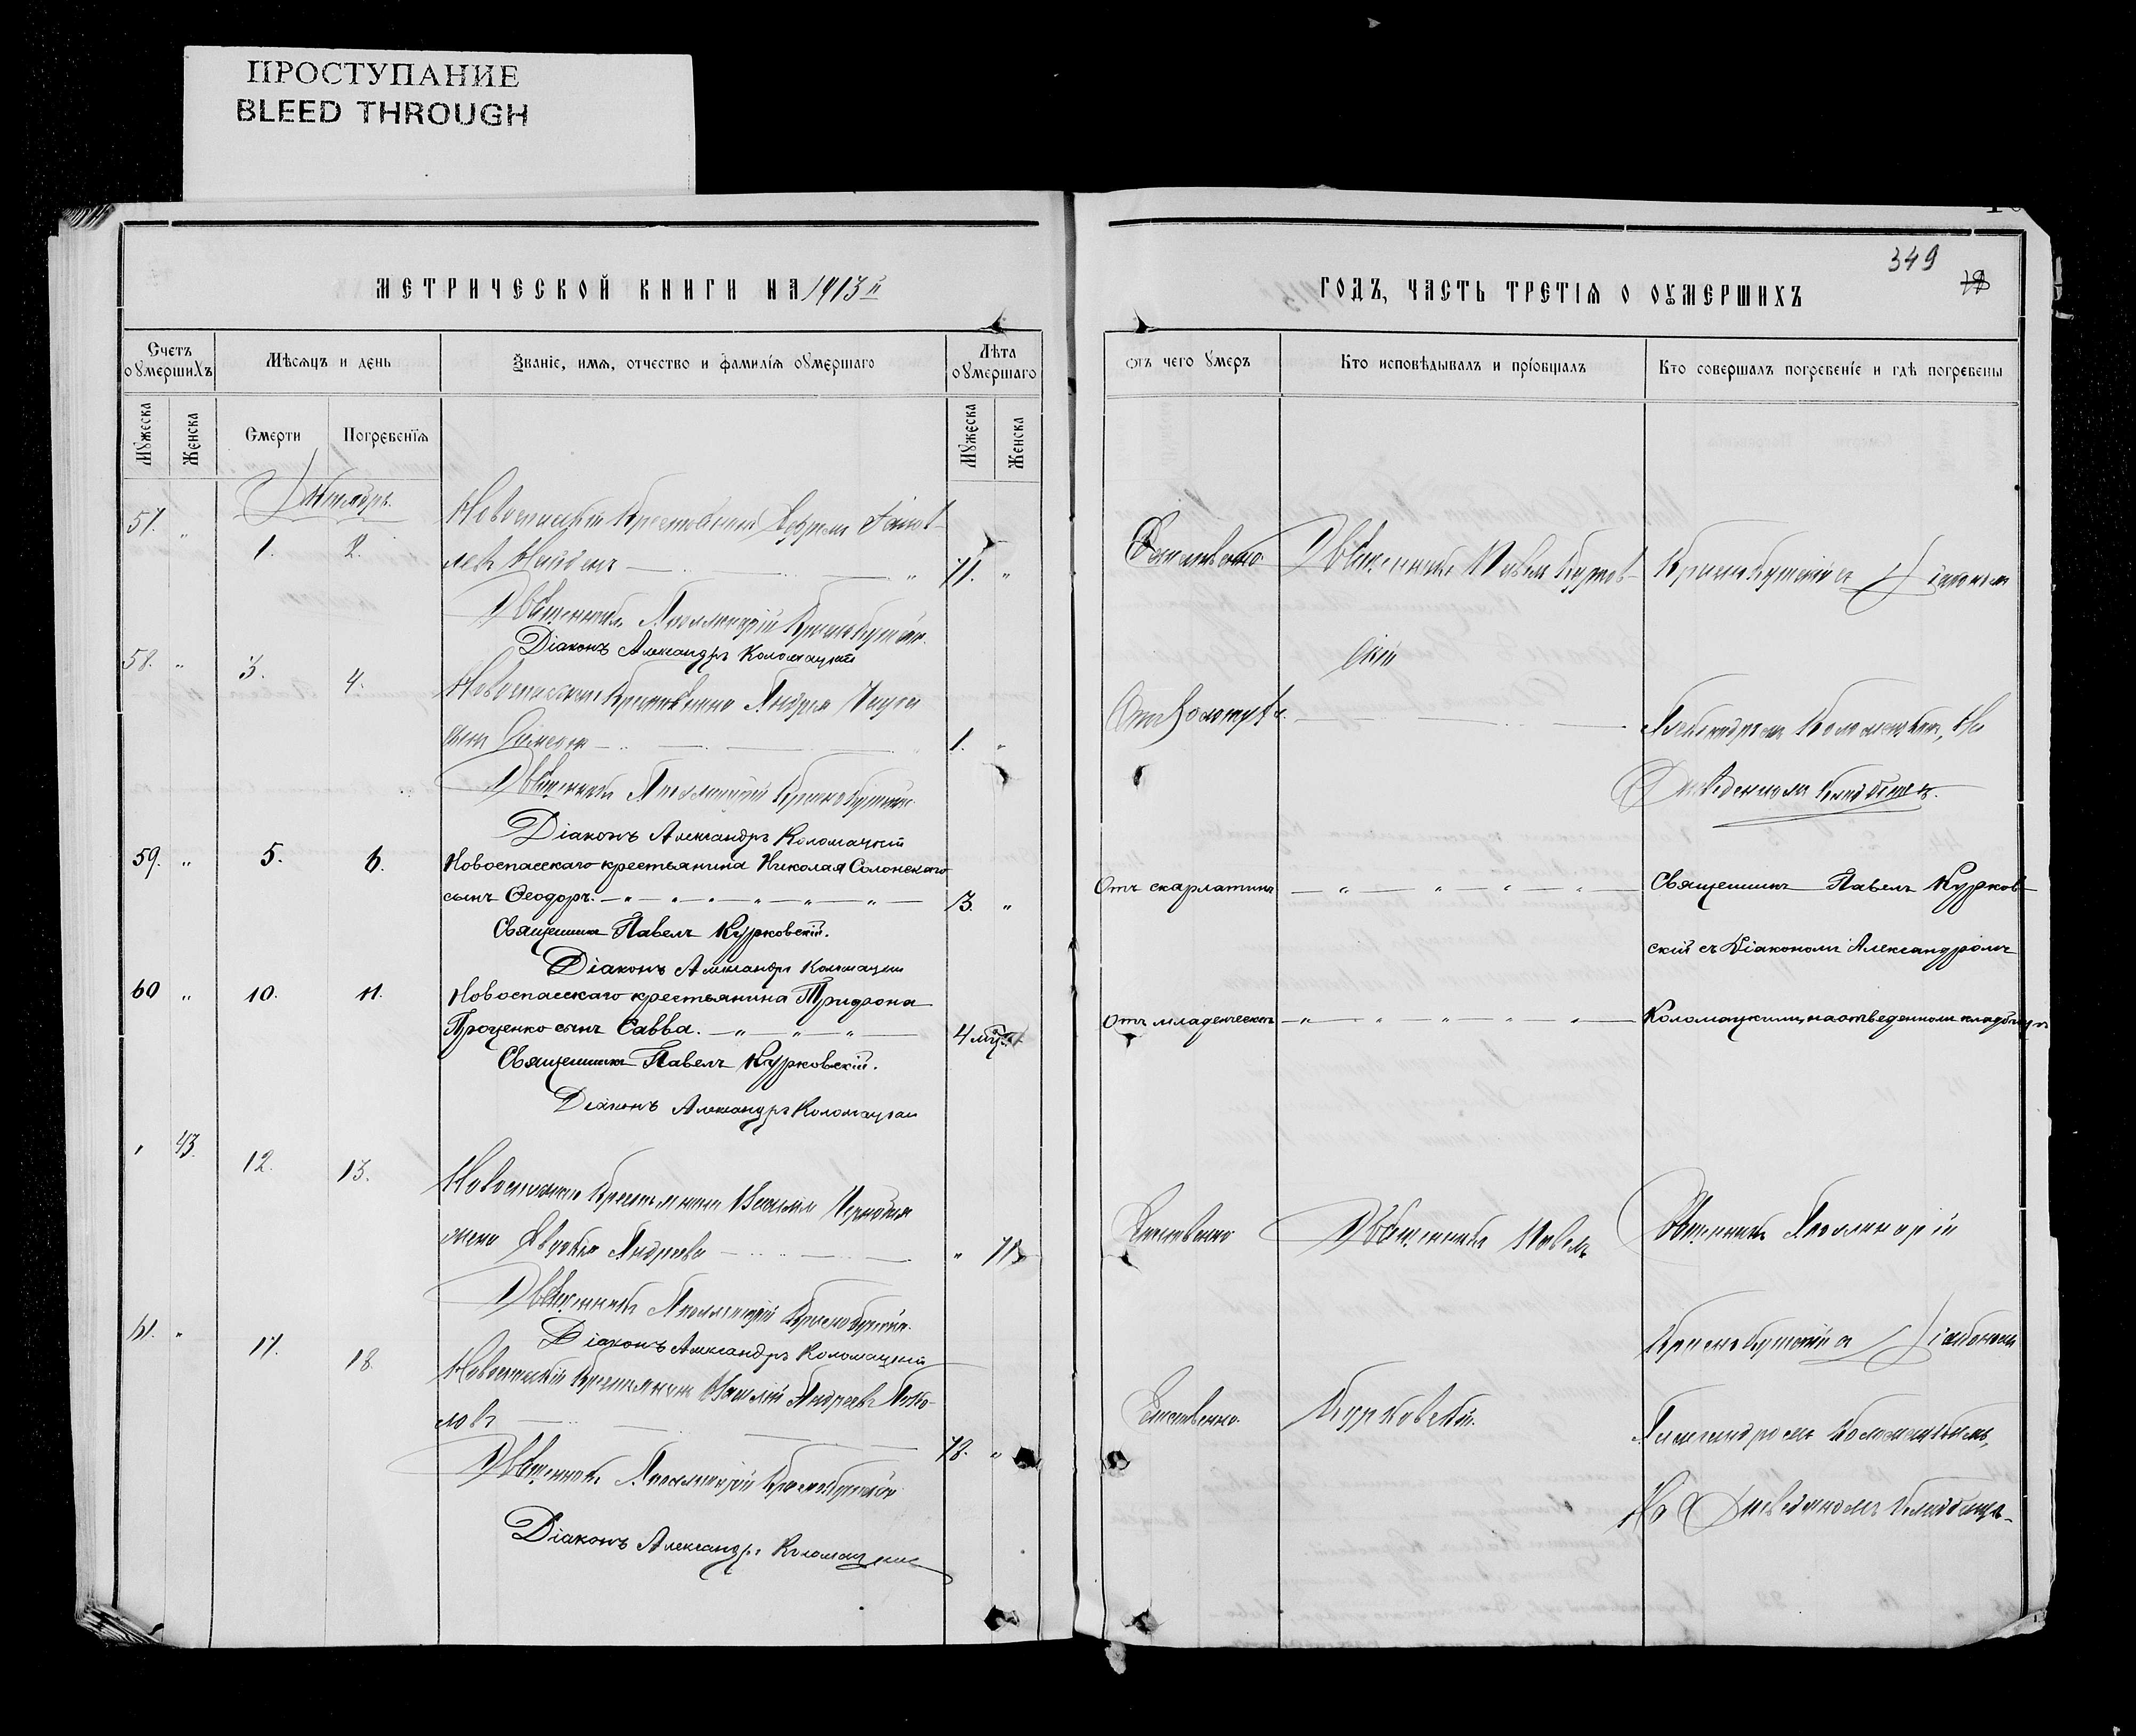 ПРОСТУПАНИЕ
BLEED THROUGH
МЕТРИЧЕСКОЙ КНИГИ НА 1913 й
Счетъ оумершихъ
Мѣсяцъ и день
Званіе, имя, отчество и фамилія оумершаго
Лѣта оумершаго
Мужеска
Женска
Смерти
Погребенія
Мужеска
Женска
Октябрь.
57. „ 1. 2.
71. „
Священникъ Аполлинарій Краснокутскій.
Діаконъ Александръ Коломацкій
58. „ 3. 4. Новоспасскаго крестьянина Андрея
сынъ 1. „
Священникъ Аполлинарій Краснокутскій
Діаконъ Александръ Коломацкій
59. „ 5. 6. Новоспасскаго крестьянина Николая Солонскаго
сынъ Ѳеодоръ. — „ — „ — „ — „ — „ — „ — 3. „
Священникъ Павелъ Курковскій.
Діаконъ Александръ Коломацкій
60 „ 10. 11. Новоспасскаго крестьянина Трифона
Проценко сынъ Савва. — „ — „ — „ — 4 мѣс.
Священникъ Павелъ Курковскій.
Діаконъ Александръ Коломацкій
„ 43. 12. 13. Новоспасскаго крестьянина Василія
жена Евдокія Андреева „ 71
Священникъ Аполлинарій Краснокутскій.
Діаконъ Александръ Коломацкій
61. „ 17. 18. Новоспасскій крестьянинъ Василій Андреевъ
ловъ 78. „
Священникъ Аполлинарій Краснокутскій
Діаконъ Александръ Коломацкій
349
ГОДЪ, ЧАСТЬ ТРЕТІЯ О ОУМЕРШИХЪ
отъ чего умеръ
Кто исповѣдывалъ и пріобщалъ
Кто совершалъ погребеніе и гдѣ погребены
Священникъ Павелъ Курков-
Краснокутскій съ Діакономъ
скій
Александромъ Коломацкимъ, на
отведенномъ кладбищѣ.
Отъ скарлатины — „ — „ — „ — „ — Священникъ Павелъ Курков-
скій съ Діакономъ Александромъ
Отъ младенческой — „ — „ — „ — „ — Коломацкимъ, на отведенномъ кладбищѣ
Естественно Священникъ Павелъ Священникъ Аполлинарій
Краснокутскій съ Діакономъ
Естественно. Курковскій.
Александромъ Коломацкимъ,
на отведенномъ кладбищѣ.